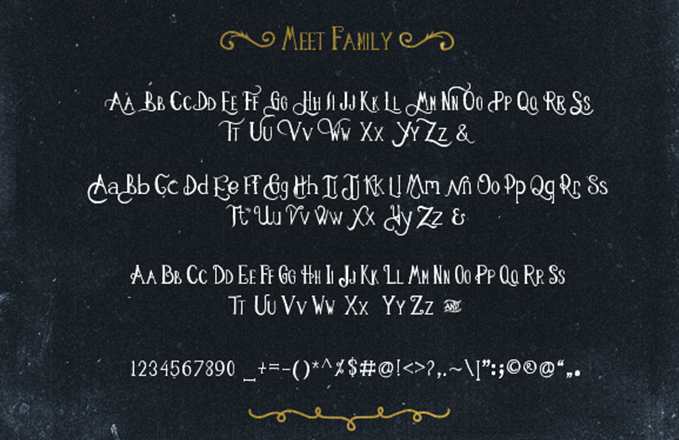 Meet Family
Aa Bb Cc Dd Ee Ff Gg Hh Ii Jj Kk Ll Mm Nn Oo Pp Qq Rr Ss
Tt Uu Vv Ww Xx Yy Zz &
Aa Bb Cc Dd Ee Ff Gg Hh Ii Jj Kk Ll Mm Nn Oo Pp Qq Rr Ss
Tt Uu Vv Ww Xx Yy Zz &
Aa Bb Cc Dd Ee Ff Gg Hh Ii Jj Kk Ll Mm Nn Oo Pp Qq Rr Ss
Tt Uu Vv Ww Xx Yy Zz AND
1234567890 _+=-()*^%$#@!<>?,.~\|”:;©®@“„.